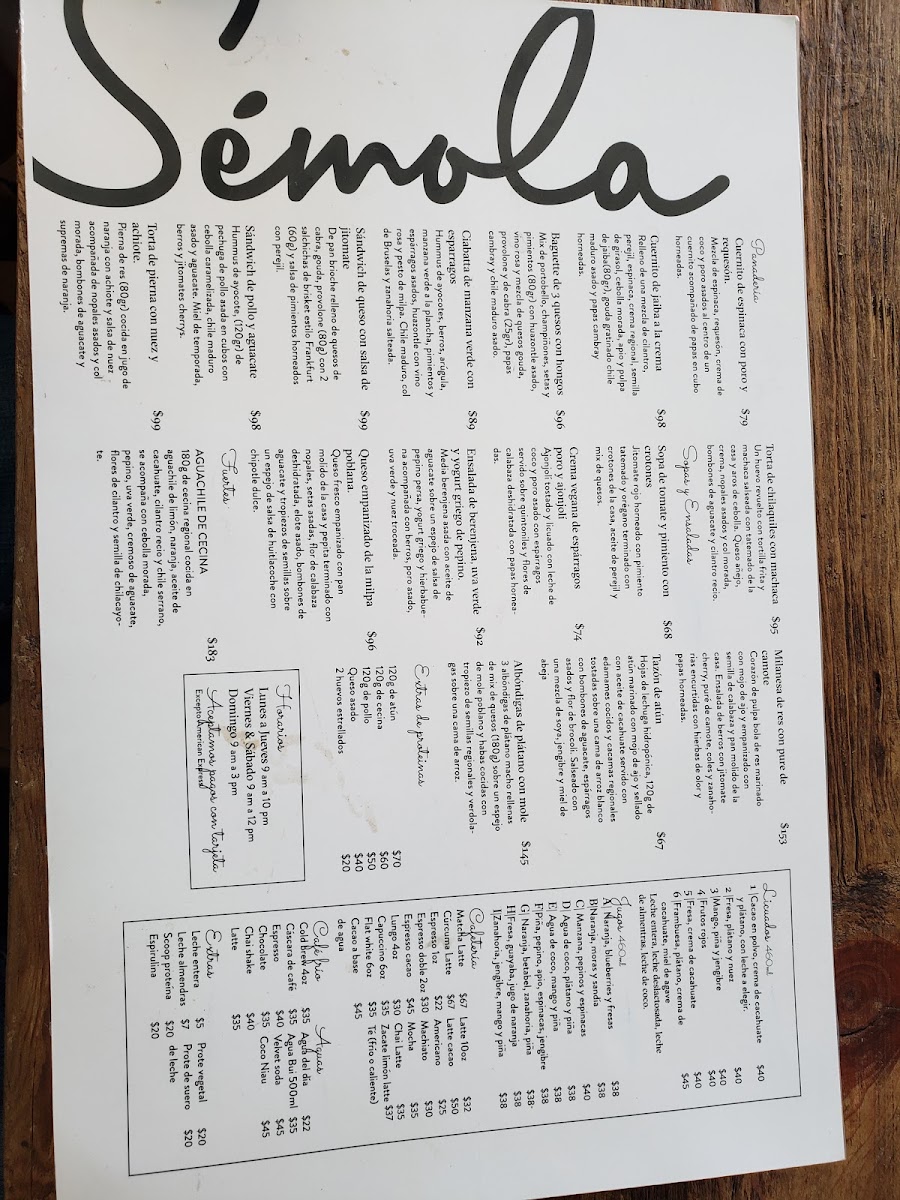 Sémola
Panadería
Cuernito de espinaca con poro y
requesón $79
Mezcla de espinaca, requesón, crema de
coco y poro asados al centro de un
cuernito acompañado de papas en cubo
horneadas.
Cuernito de jaiba a la crema $98
Relleno de una mezcla de cilantro,
perejil, espinaca, crema regional, semilla
de girasol, cebolla morada, apio y pulpa
de jaiba(80gr), gouda gratinado chile
maduro asado y papas cambray
horneadas.
Baguette de 3 quesos con hongos $96
Mix de portobello, champiñones, setas y
pimientos (80gr) con huazontle asado,
vino rosa y mezcla de quesos gouda,
provolone y de cabra (25gr), papas
cambray y chile maduro asado.
Ciabatta de manzana verde con
espárragos $89
Hummus de ayocotes, berros, arúgula,
manzana verde a la plancha, pimientos y
espárragos asados, huazontle con vino
rosa y pesto de milpa. Chile maduro, col
de Bruselas y zanahoria salteada.
Sándwich de queso con salsa de
jitomate $99
De pan brioche relleno de quesos de
cabra, gouda, provolone (80g) con 2
salchichas de brisket estilo Frankfurt
(60g) y salsa de pimientos horneados
con perejil.
Sándwich de pollo y aguacate $98
Hummus de ayocote, (120gr) de
pechuga de pollo asada en cubos con
cebolla caramelizada, chile maduro
asado y aguacate. Miel de temporada,
berros y jitomates cherrys.
Torta de pierna con nuez y
achiote. $99
Pierna de res (80g) cocida en jugo de
naranja con achiote y salsa de nuez
acompañada de nopales asados y col
morada, bombones de aguacate y
supremas de naranja.
Torta de chilaquiles con machaca $95
Un huevo revuelto con tortilla frita y
machaca salseada con tatemado de la
casa y aros de cebolla. Queso añejo,
crema, nopales asados y col morada,
bombones de aguacate y cilantro recio.
Sopas y Ensaladas
Sopa de tomate y pimiento con
crotones $68
Jitomate rojo horneado con pimiento
tatemado y orégano terminado con
crotones de la casa, aceite de perejil y
mix de quesos.
Crema vegana de espárragos
poro y ajonjolí $74
Ajonjolí tostado y licuado con leche de
coco y poro asado con espárragos
servido sobre quintoniles y flores de
calabaza deshidratada con papas hornea-
das.
Ensalada de berenjena, uva verde
y yogurt griego de pepino. $92
Media berenjena asada con aceite de
aguacate sobre un espejo de salsa de
pepino persa, yogurt griego y hierbabue-
na acompañada con berros, poro asado,
uva verde y nuez troceada.
Queso empanizado de la milpa
poblana $96
Queso fresco empanizado con pan
molido de la casa y pepita terminado con
nopales, setas asadas, flor de calabaza
deshidratada, elote asado, bombones de
aguacate y tropiezos de semillas sobre
un espejo de salsa de huitlacoche con
chipotle dulce.
Fuertes
AGUACHILE DE CECINA $183
180g de cecina regional cocida en
aguachile de limón, naranja, aceite de
cacahuate, cilantro recio y chile serrano,
se acompaña con cebolla morada,
pepino, uva verde, cremoso de aguacate,
flores de cilantro y semilla de chilacayo-
te.
Milanesa de res con pure de
camote $153
Corazón de pulpa bola de res marinado
con mojo de ajo y empanizado con
semilla de calabaza y pan molido de la
casa. Ensalada de berros con jitomate
cherry, puré de camote, coles y zanaho-
rias encurtidas con hierbas de olor y
papas horneadas.
Tazón de atún $67
Hojas de lechuga hidropónica, 120g de
atún marinado con mojo de ajo y sellado
con aceite de cacahuate servido con
edamames cocidos y cacamas regionales
tostadas sobre una cama de arroz blanco
con bombones de aguacate, espárragos
asados y flor de brocoli. Salseado con
una mezcla de soya, jengibre y miel de
abeja
Albóndigas de plátano con mole $145
3 albóndigas de plátano macho rellenas
de mix de quesos (180g) sobre un espejo
de mole poblano y habas cocidas con
tropiezo de semillas regionales y verdola-
gas sobre una cama de arroz.
Extras de proteínas
120g de atún $70
120g de cecina $60
120g de pollo $50
Queso asado $40
2 huevos estrellados $20
Horarios
Lunes a Jueves 9 am a 10 pm
Viernes & Sábado 9 am a 12 pm
Domingo 9 am a 3 pm
Aceptamos pagos con tarjeta
Excepto American Express
Licuados 460ml
1 |Cacao en polvo, crema de cacahuate
y plátano, con leche a elegir. $40
2 |Fresa, plátano y nuez $40
3 |Mango, piña y jengibre $40
4 |Frutos rojos $40
5 |Fresa, crema de cacahuate $40
6 |Frambuesa, plátano, crema de
cacahuate, miel de agave $45
Leche entera, leche deslactosada, leche
de almendras, leche de coco.
Jugos 460ml
A| Naranja, blueberries y fresas $38
B|Naranja, moras y sandia $38
C| Manzana, pepinos y espinacas $40
D| Agua de coco, plátano y piña $38
E| Agua de coco, mango y piña $38
F|Piña, pepino, apio, espinacas, jengibre $38
G| Naranja, betabel, zanahoria, piña $38
H|Fresa, guayaba, jugo de naranja $38
I|Zanahoria, jengibre, mango y piña $38
Cafetería
Matcha Latte $67 Latte 10oz $32
Cúrcuma Latte $67 Latte cacao $50
Espresso 1oz $22 Americano $25
Espresso doble 2oz $30 Machiato $30
Espresso cacao $45 Mocha $35
Lungo 4oz $30 Chai Latte $35
Capuccino 6oz $35 Zacate limón latte $37
Flat white 6oz $35 Té (frío o caliente)
Cacao a base
de agua $45
Café frío
Cold brew 4oz $35
Cáscara de café $35
Espresso $40
Chocolate $35
Chai shake $40
Latte $35
Aguas
Agua del día $22
Agua Bui 500ml $35
Velvet soda $45
Coco Niau $45
Extras
Leche entera $5 Prote vegetal $20
Leche almendras $7 Prote de suero
Scoop proteína $20 de leche $20
Espirulina $20